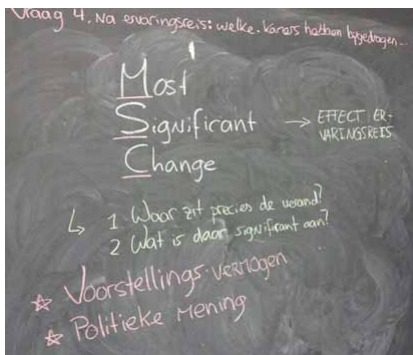 Vraag 4. Na ervaringsreis: welke kaners hebben bijgedragen...
Most
Significant → EFFECT ER-
VARINGSREIS
Change
↳ 1. Waar zit precies de verand?
2 Wat is daar significant aan?
☆ Voorstellings vermogen
☆ Politieke mening